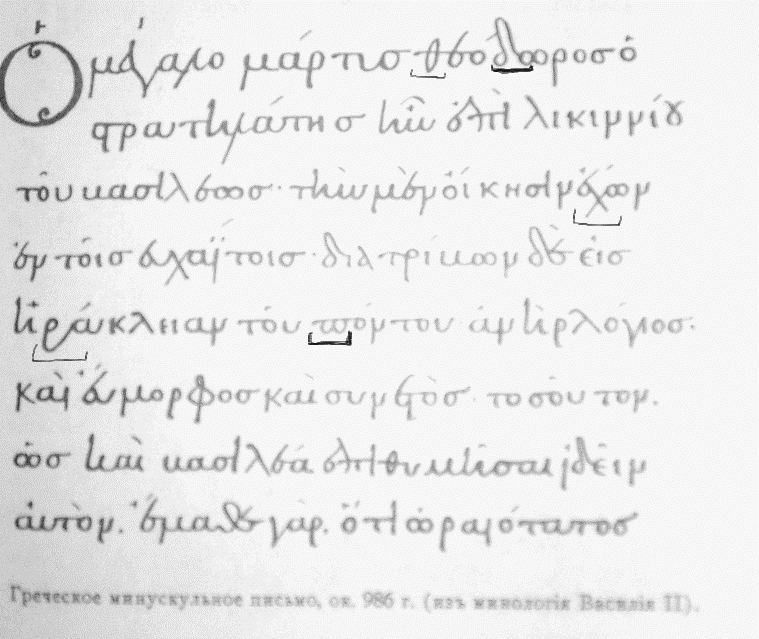 Ὁ μέγασ μάρτυσ θεόδωροσ ὁ
στρατηλάτησ ἦν ἐπὶ λικιννίου
τοῦ βασιλέωσ· τὴν μὲν οἴκησιν ἔχων
ἐν τοῖσ εὐχαΐτοισ· διατρίβων δὲ εἰσ
ἡράκλειαν τοῦ πόντου ἀνὴρ λόγιοσ·
καὶ εὔμορφοσ καὶ συνετὸσ· τοσοῦτον.
ὡσ καὶ βασιλέα ἐπιθυμῆσαι ἰδεῖν
αὐτὸν. ἔμαθε γὰρ. ὅτι ὡραιότατοσ
Греческое минускульное письмо, ок. 986 г. (изъ минологія Василія II).